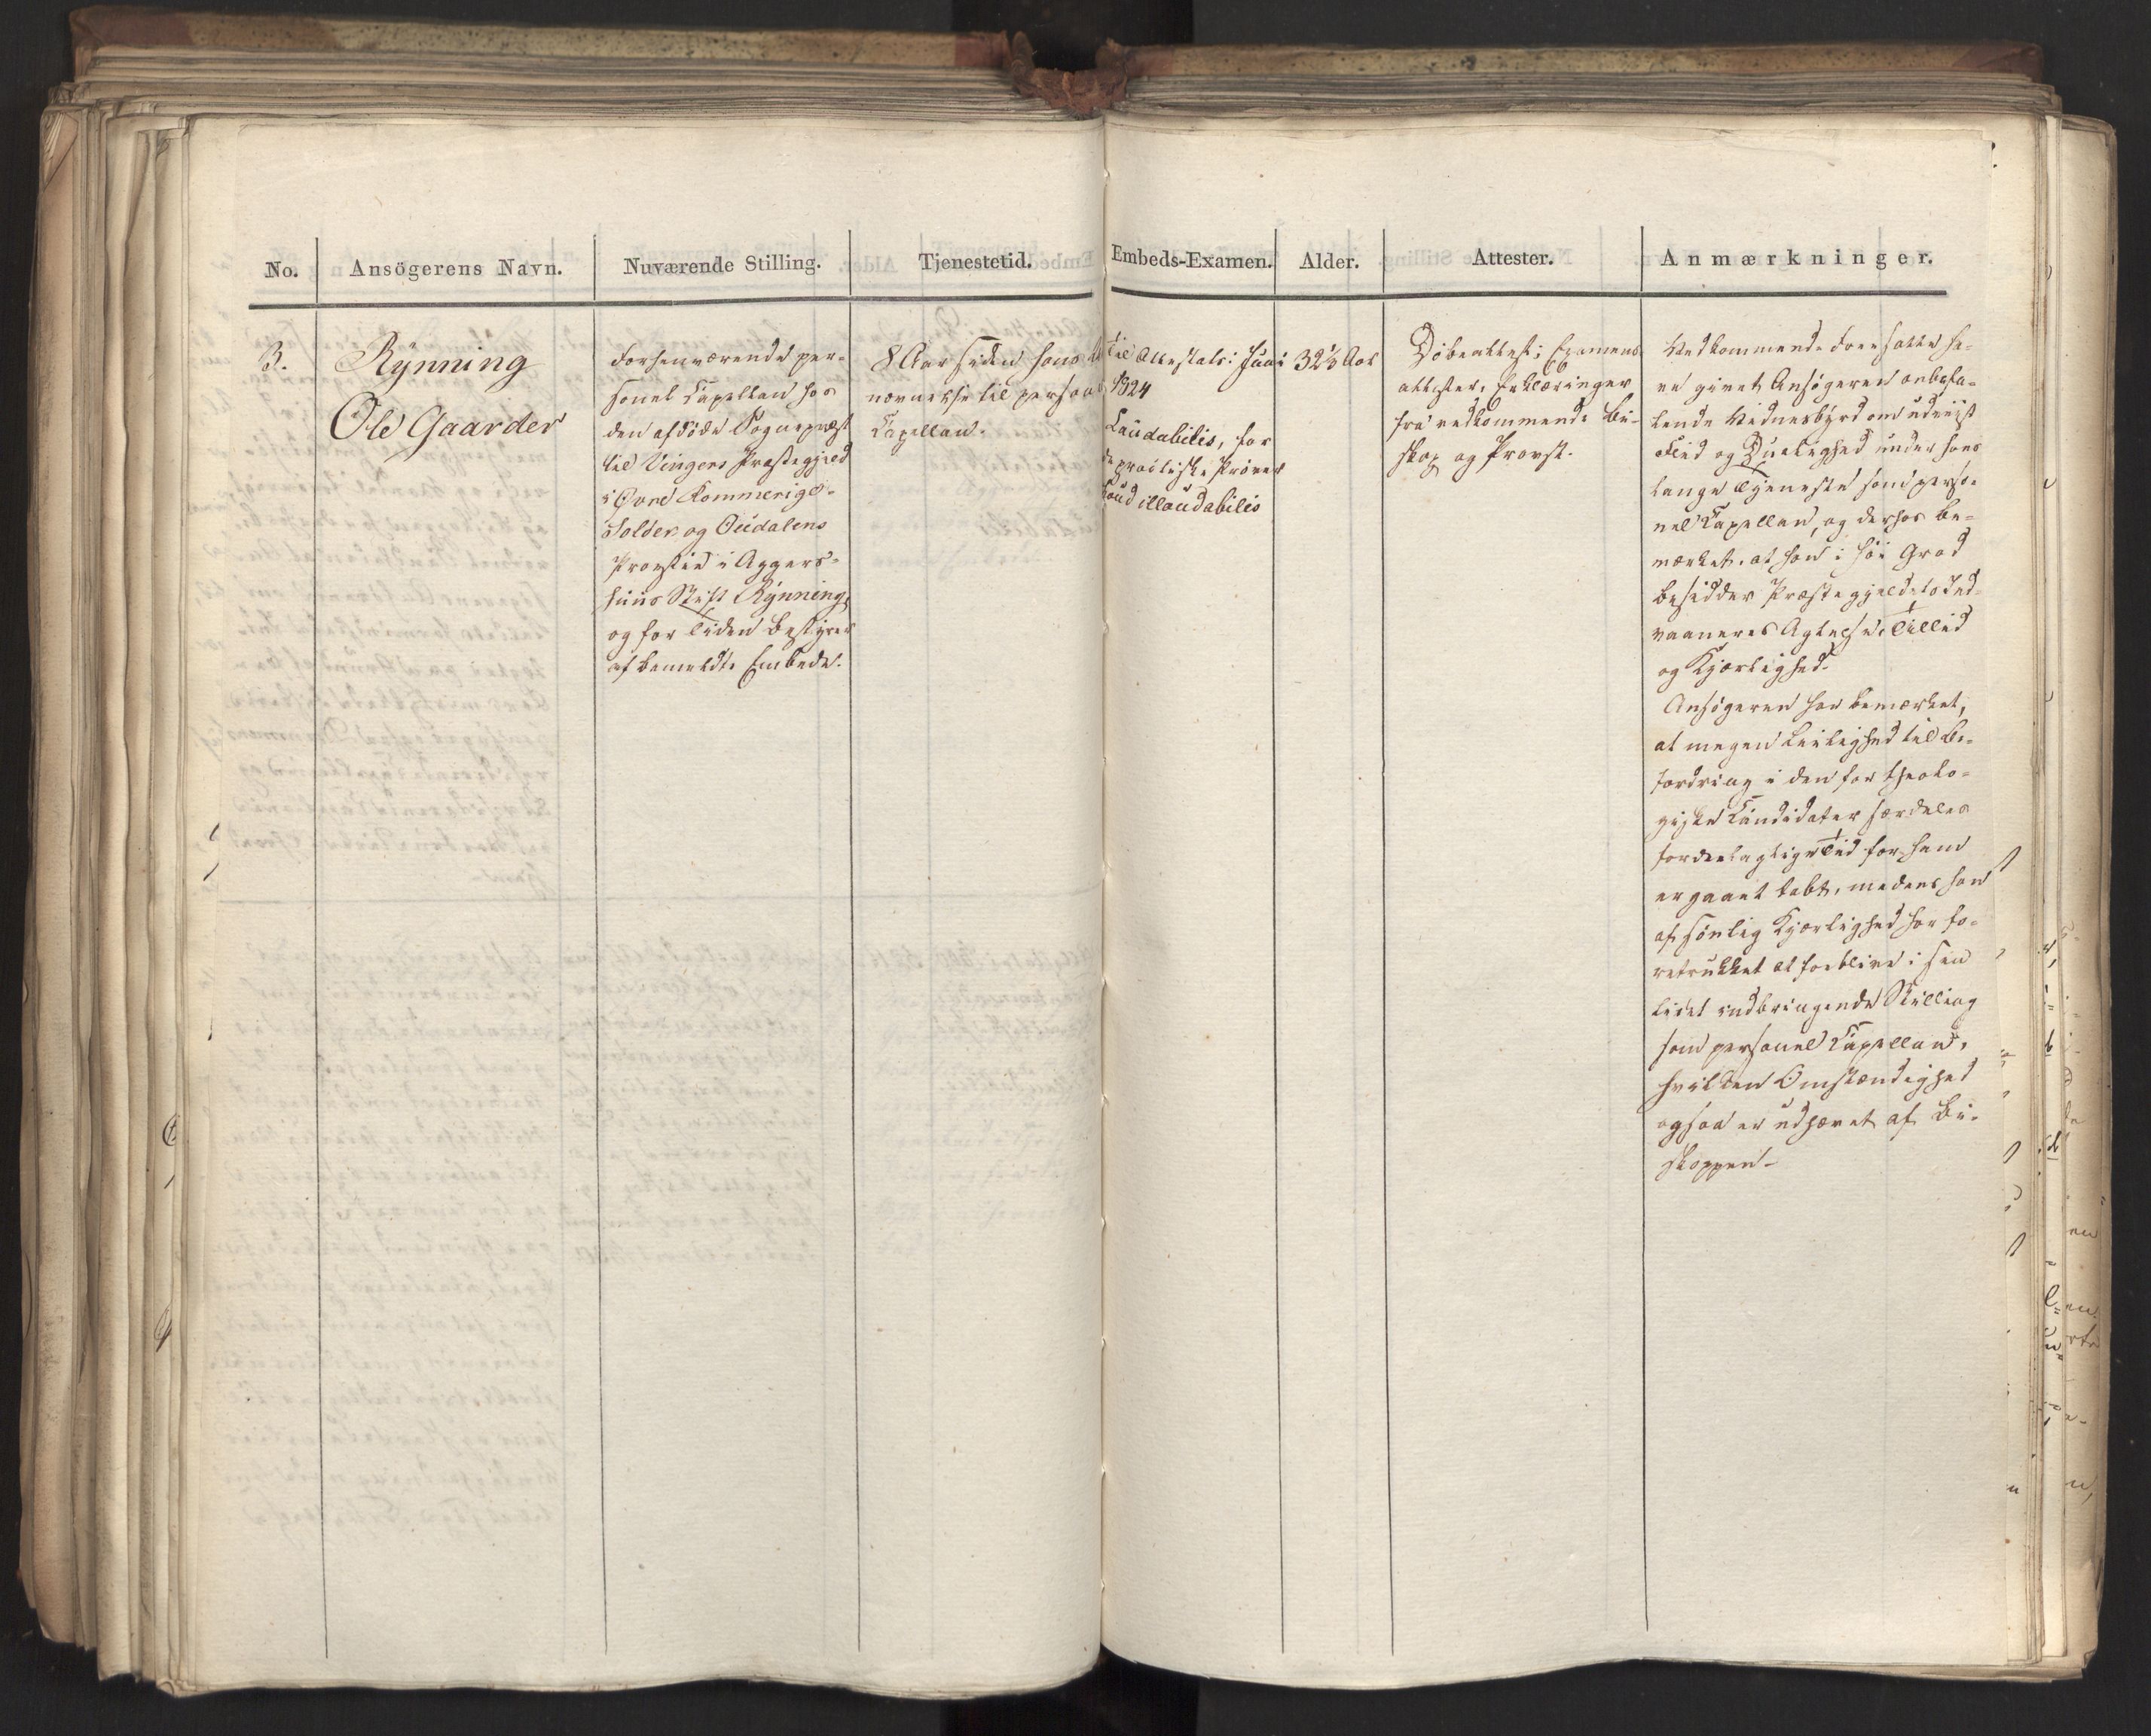 No. Ansögerens Navn. Nuværende Stilling. Tjenestetid. Embeds-Examen. Alder. Attester. Anmærkninger.
3.
Rynning
Ole Gaarder
Forhenværende per-
sonel Capellan hos
den afdöde Sognepræst
til Vingers Præstegjeld
i Övre Rommerige-
Solöer og Oudalens
Provstie i Aggers-
huus Stift Rynning,
og for Tiden Bestyrer
af bemeldte Embede.
8 Aar siden hans
nævnelse til personel
Capellan.
til Attestats: Juni
1824
Laudabilis, for
de practiske Pröver
haud illaudabilis
32 1/3 Aar
Döbeattest; Examens-
attester, Erklæringer
fra vedkommende Bi-
skop og Provst.
Vedkommende Foresatte ha-
ve givet Ansögeren anbefa-
lende Vidnesbyrd om udviist
Flid og Duelighed under hans
lange Tjeneste som perso-
nel Capellan, og derhos be-
mærket, at han i höi Grad
besidder Præstegjeldets Ind-
vaaneres Agtelse, Tillid
og Kjærlighed.
Ansögeren har bemærket,
at megen Leilighed til Be-
fordring i den for theolo-
giske Candidater særdeles
fordeelagtige Tid for ham
er gaaet tabt, medens han
af sönlig Kjærlighed har fo-
retrukket at forblive i sin
lidet indbringende Stilling
som personel Capellan,
hvilken Omstændighed
ogsaa er udhævet af Bi-
skoppen.